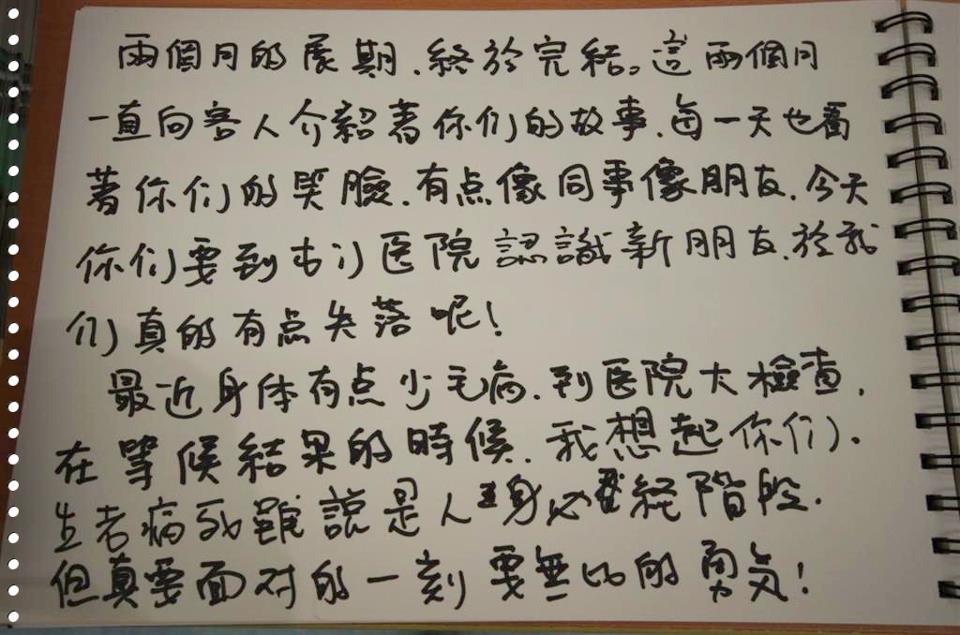 兩個月的展期、終於完結。這兩個月
一直向客人介紹著你们的故事、每一天也看
著你们的笑臉、有点像同事像朋友、今天
你们要到古门医院認識新朋友、於我
们真的有点失落呢！
最近身体有点少毛病、到医院大檢查，
在等候結果的時候、我想起你们。
生老病死雖說是人身必經階段、
但真要面对的一刻要無比的勇氣！